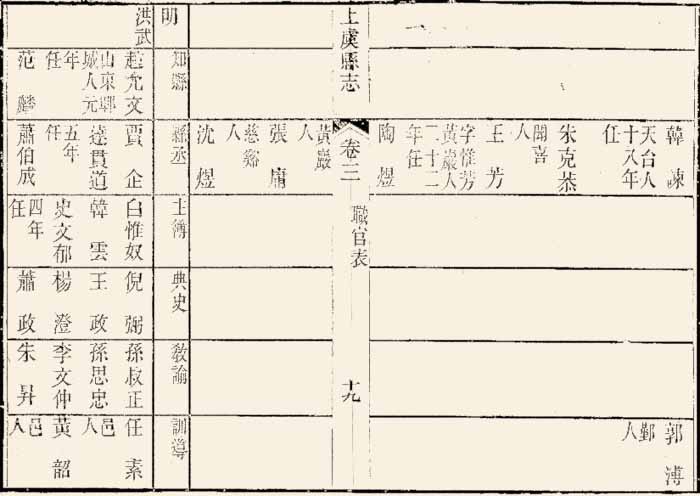 韓諫
天台人
十八年
任
朱克恭
聞喜
人
王芳
字惟芳
黃巖人
二十二
年任
陶煜
郭溥
鄞
人
上虞縣志
卷三
職官表
十九
黃巖
人
張庸
慈谿
人
沈煜
明
知縣
縣丞
主簿
典史
教諭
訓導
洪武
趙允文
山東鄆
城人元
年
任
范
賈企
達貫道
五年
任
蕭伯成
白惟奴
韓雲
史文郁
四年
任
倪弼
王政
楊澄
蕭政
孫叔正
孫思忠
李文仲
朱昇
任素
邑
人
黃韶
邑
人